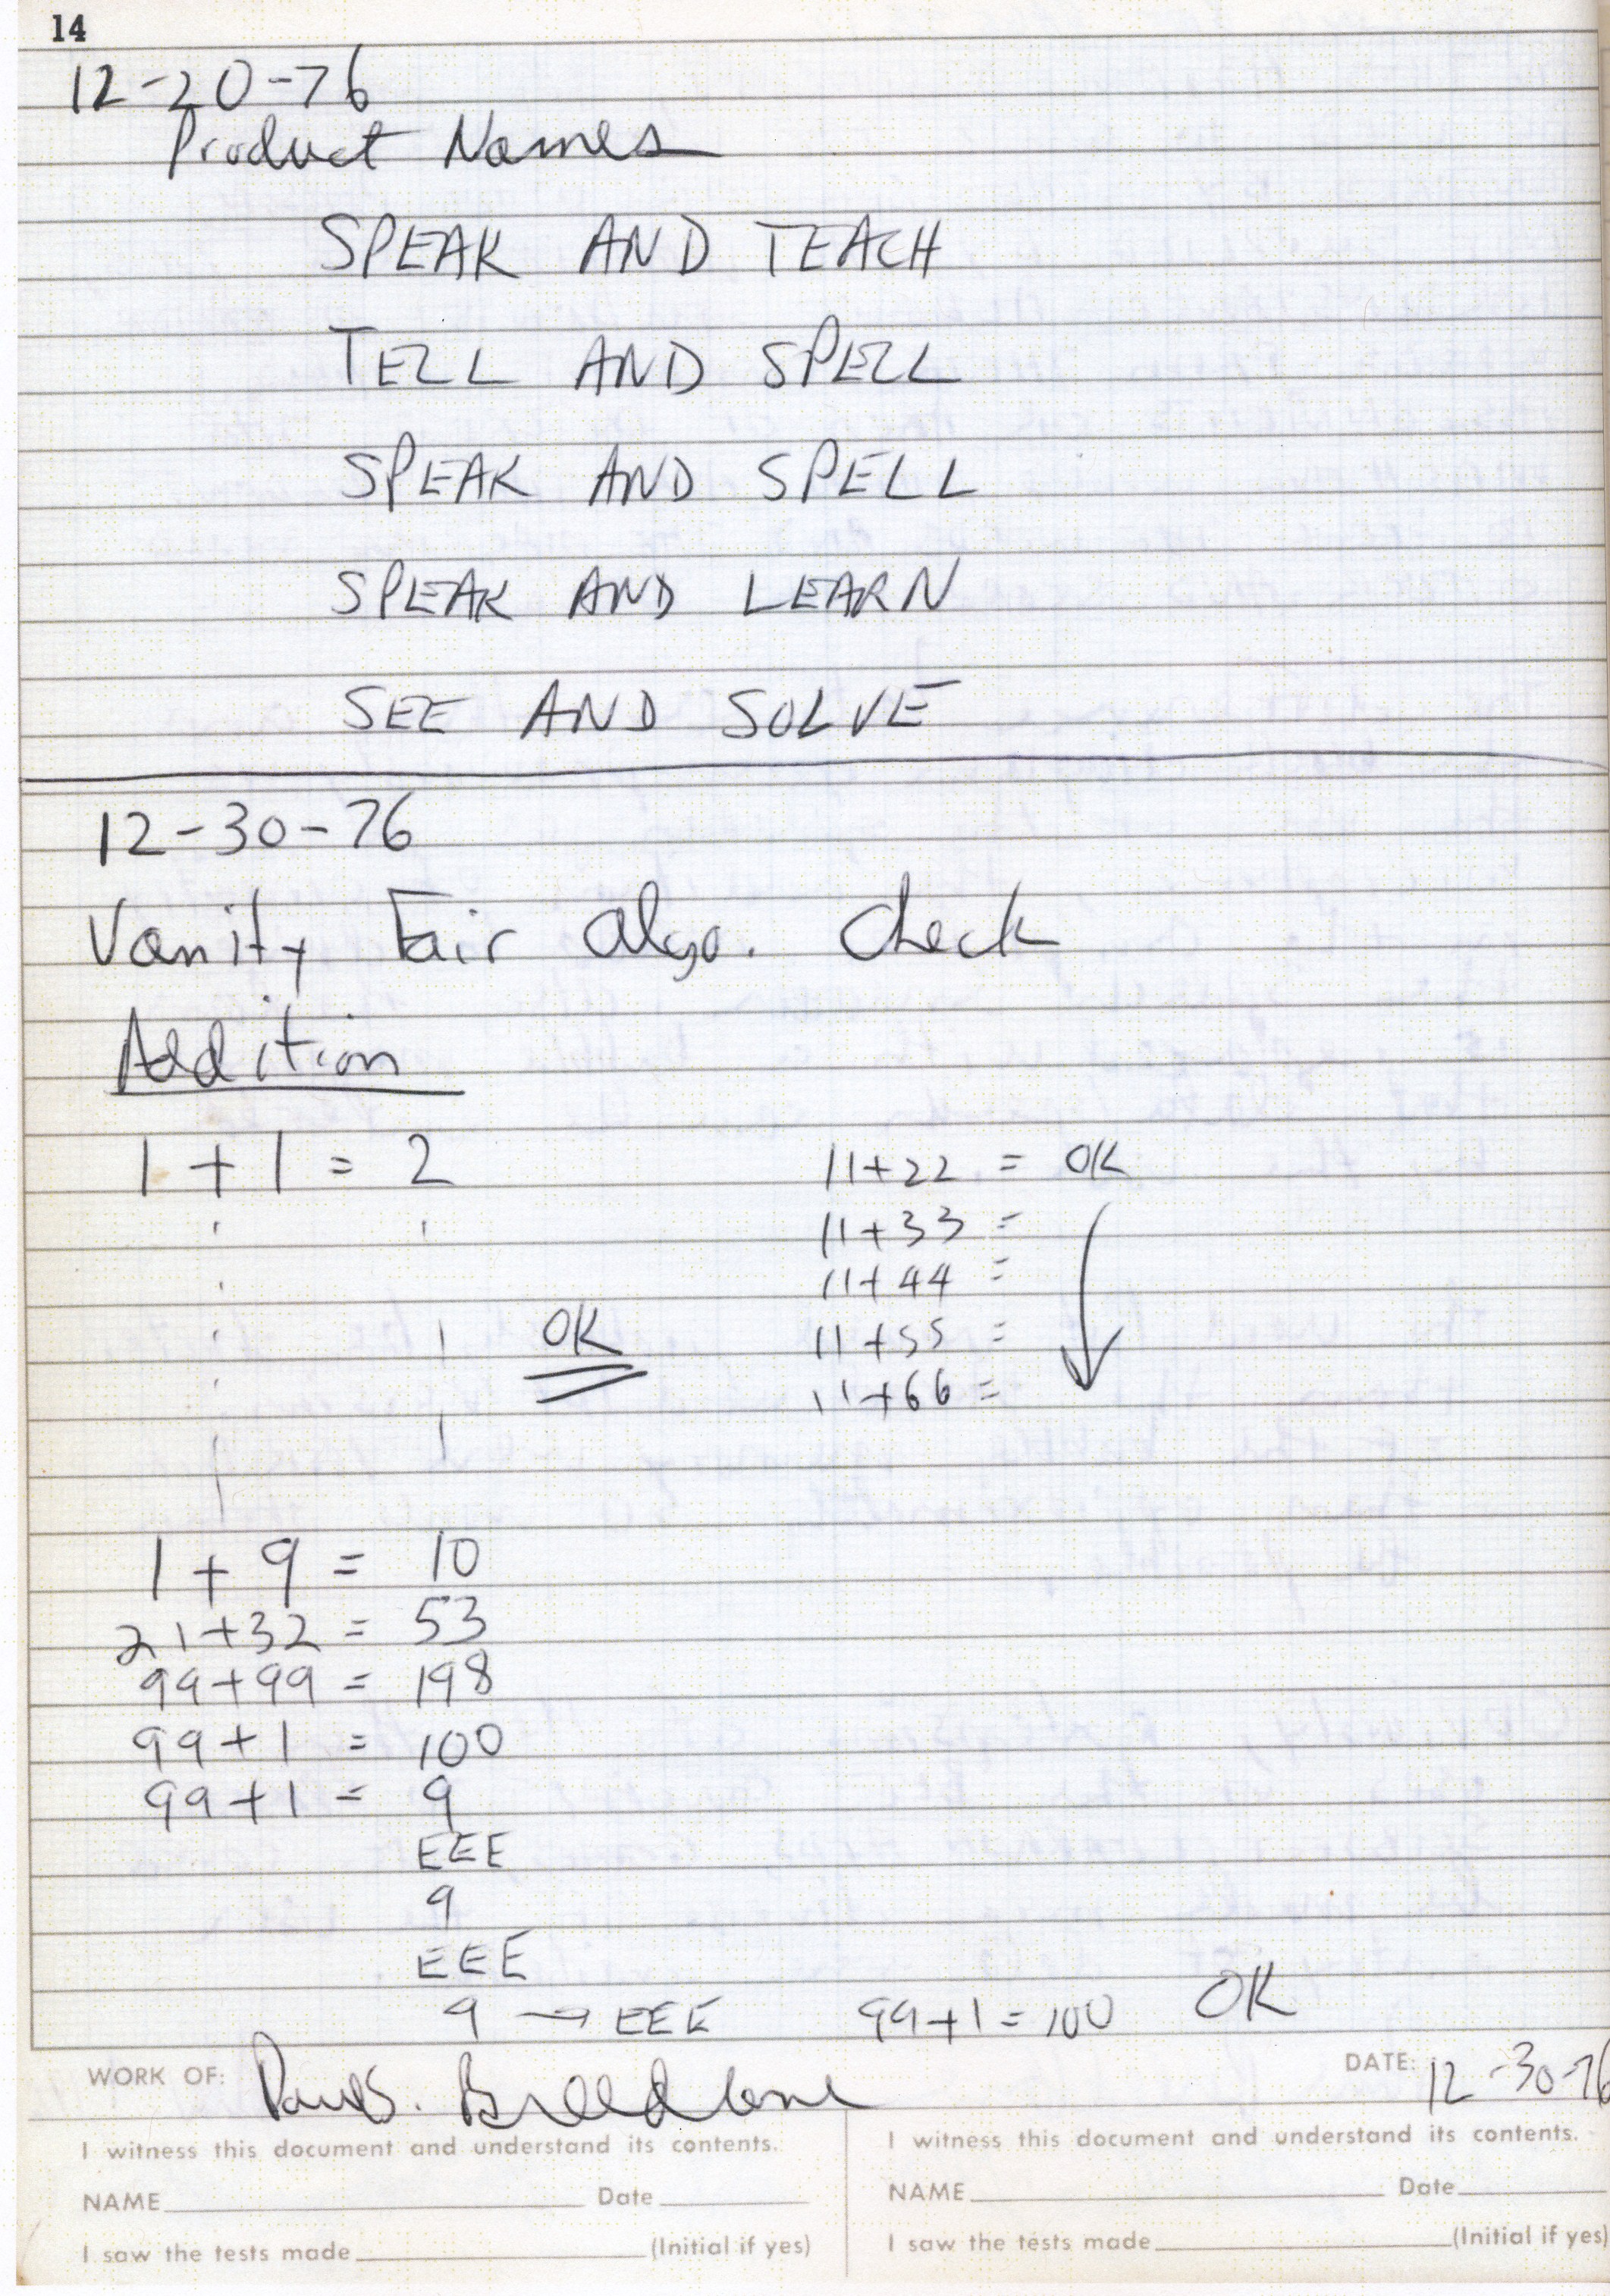 14
12-20-76
Product Names
SPEAK AND TEACH
TELL AND SPELL
SPEAK AND SPELL
SPEAK AND LEARN
SEE AND SOLVE
12-30-76
Vanity Fair algo. Check
Addition
1 + 1 = 2
OK
1 + 9 = 10
21+32 = 53
99+99 = 198
99+1 = 100
99+1 = 9
EEE
9
EEE
9 → EEE
11+22 = OK
11+33 =
11+44 =
11+55 =
11+66 =
99+1 = 100 OK
WORK OF: Paul S. Breedlove
DATE: 12-30-76
I witness this document and understand its contents.
NAME Date
I saw the tests made (Initial if yes)
I witness this document and understand its contents.
NAME Date
I saw the tests made (Initial if yes)